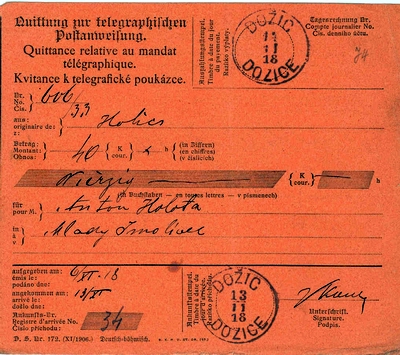 Quittung zur telegraphischen
Postanweisung.
Quittance relative au mandat
télégraphique.
Kvitance k telegrafické poukázce.
Auszahlungsstempel.
Timbre à date du
payement.
Razítko výplaty.
DOŽIC
14
11
18
DOŽICE
Tagesrechnung Nr.
Compte journalier No.
Čís. denníku účtu.
Nr.
No.
Čís.
606
33
aus:
originaire de:
z:
Holics
Betrag:
Montant:
Obnos:
40 K
cour. h
(in Ziffern)
(en chiffres)
(v číslicích)
Vierzig K
cour. h
(in Buchstaben — en toutes lettres — v písmenech)
für
pour M.
Anton Holota
in
à
v
Mlady Smolivec
aufgegeben am:
émis le:
podáno dne:
6/XI 18
angekommen am:
arrivé le:
došlo dne:
13/XI
Ankunfts-Nr.
Registre d'arrivée No.
Číslo příchodu:
34
Ankunftsstempel.
Timbre à date du
jour d'arrivée.
Razítko příchodu.
DOŽIC
13
11
18
DOŽICE
Unterschrift.
Signature.
Podpis.
D. S. Nr. 172. (XI/1906.) Deutsch-böhmisch.